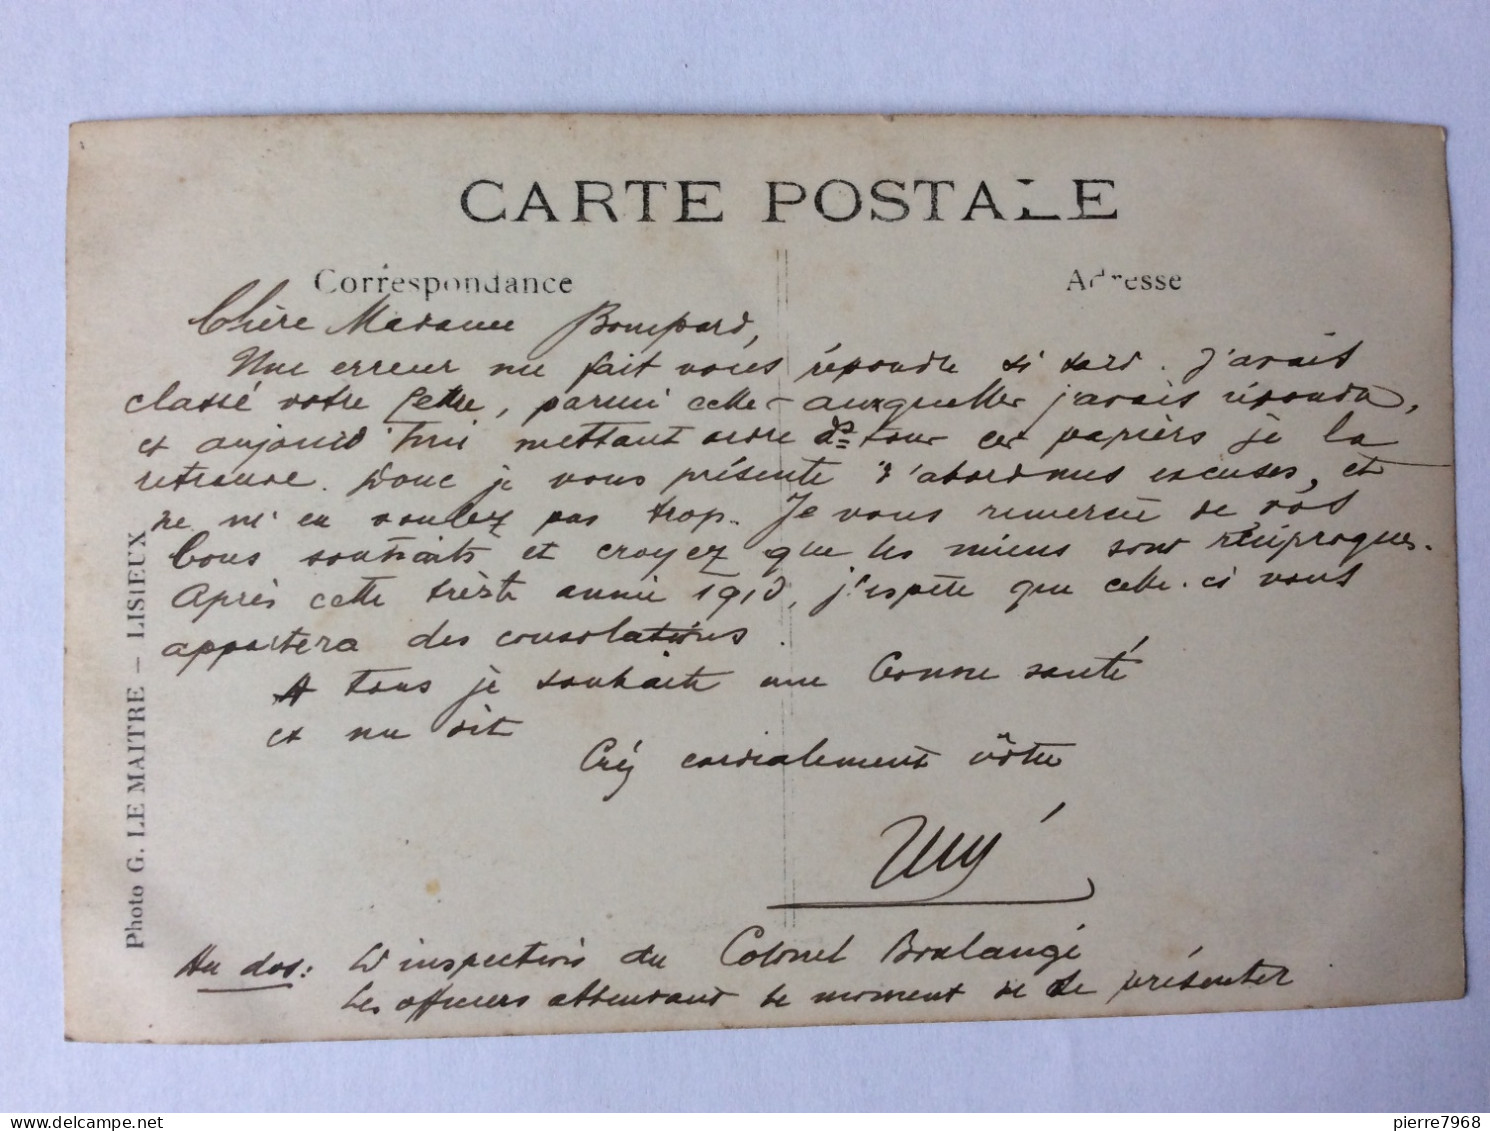 CARTE POSTALE
Correspondance
Adresse
Chère Madame Bompard,
Une erreur me fait vous répondre si tard. J'avais
classé votre lettre, parmi celles auxquelles j'avais répondu,
et aujourd'hui mettant ordre ds tous ces papiers je la
retrouve. Donc je vous présente d'abord mes excuses, et
ne m'en voulez pas trop. Je vous remercie de vos
bons souhaits et croyez que les miens sont réciproques.
Après cette triste année 1910, j'espère que celle-ci vous
apportera des consolations.
A tous je souhaite une bonne santé
et me dit
cordialement vôtre
Au dos: L'inspection du Colonel Boulangé
Les officiers attendant le moment de se présenter
Photo G. LE MAITRE – LISIEUX
pierre7968